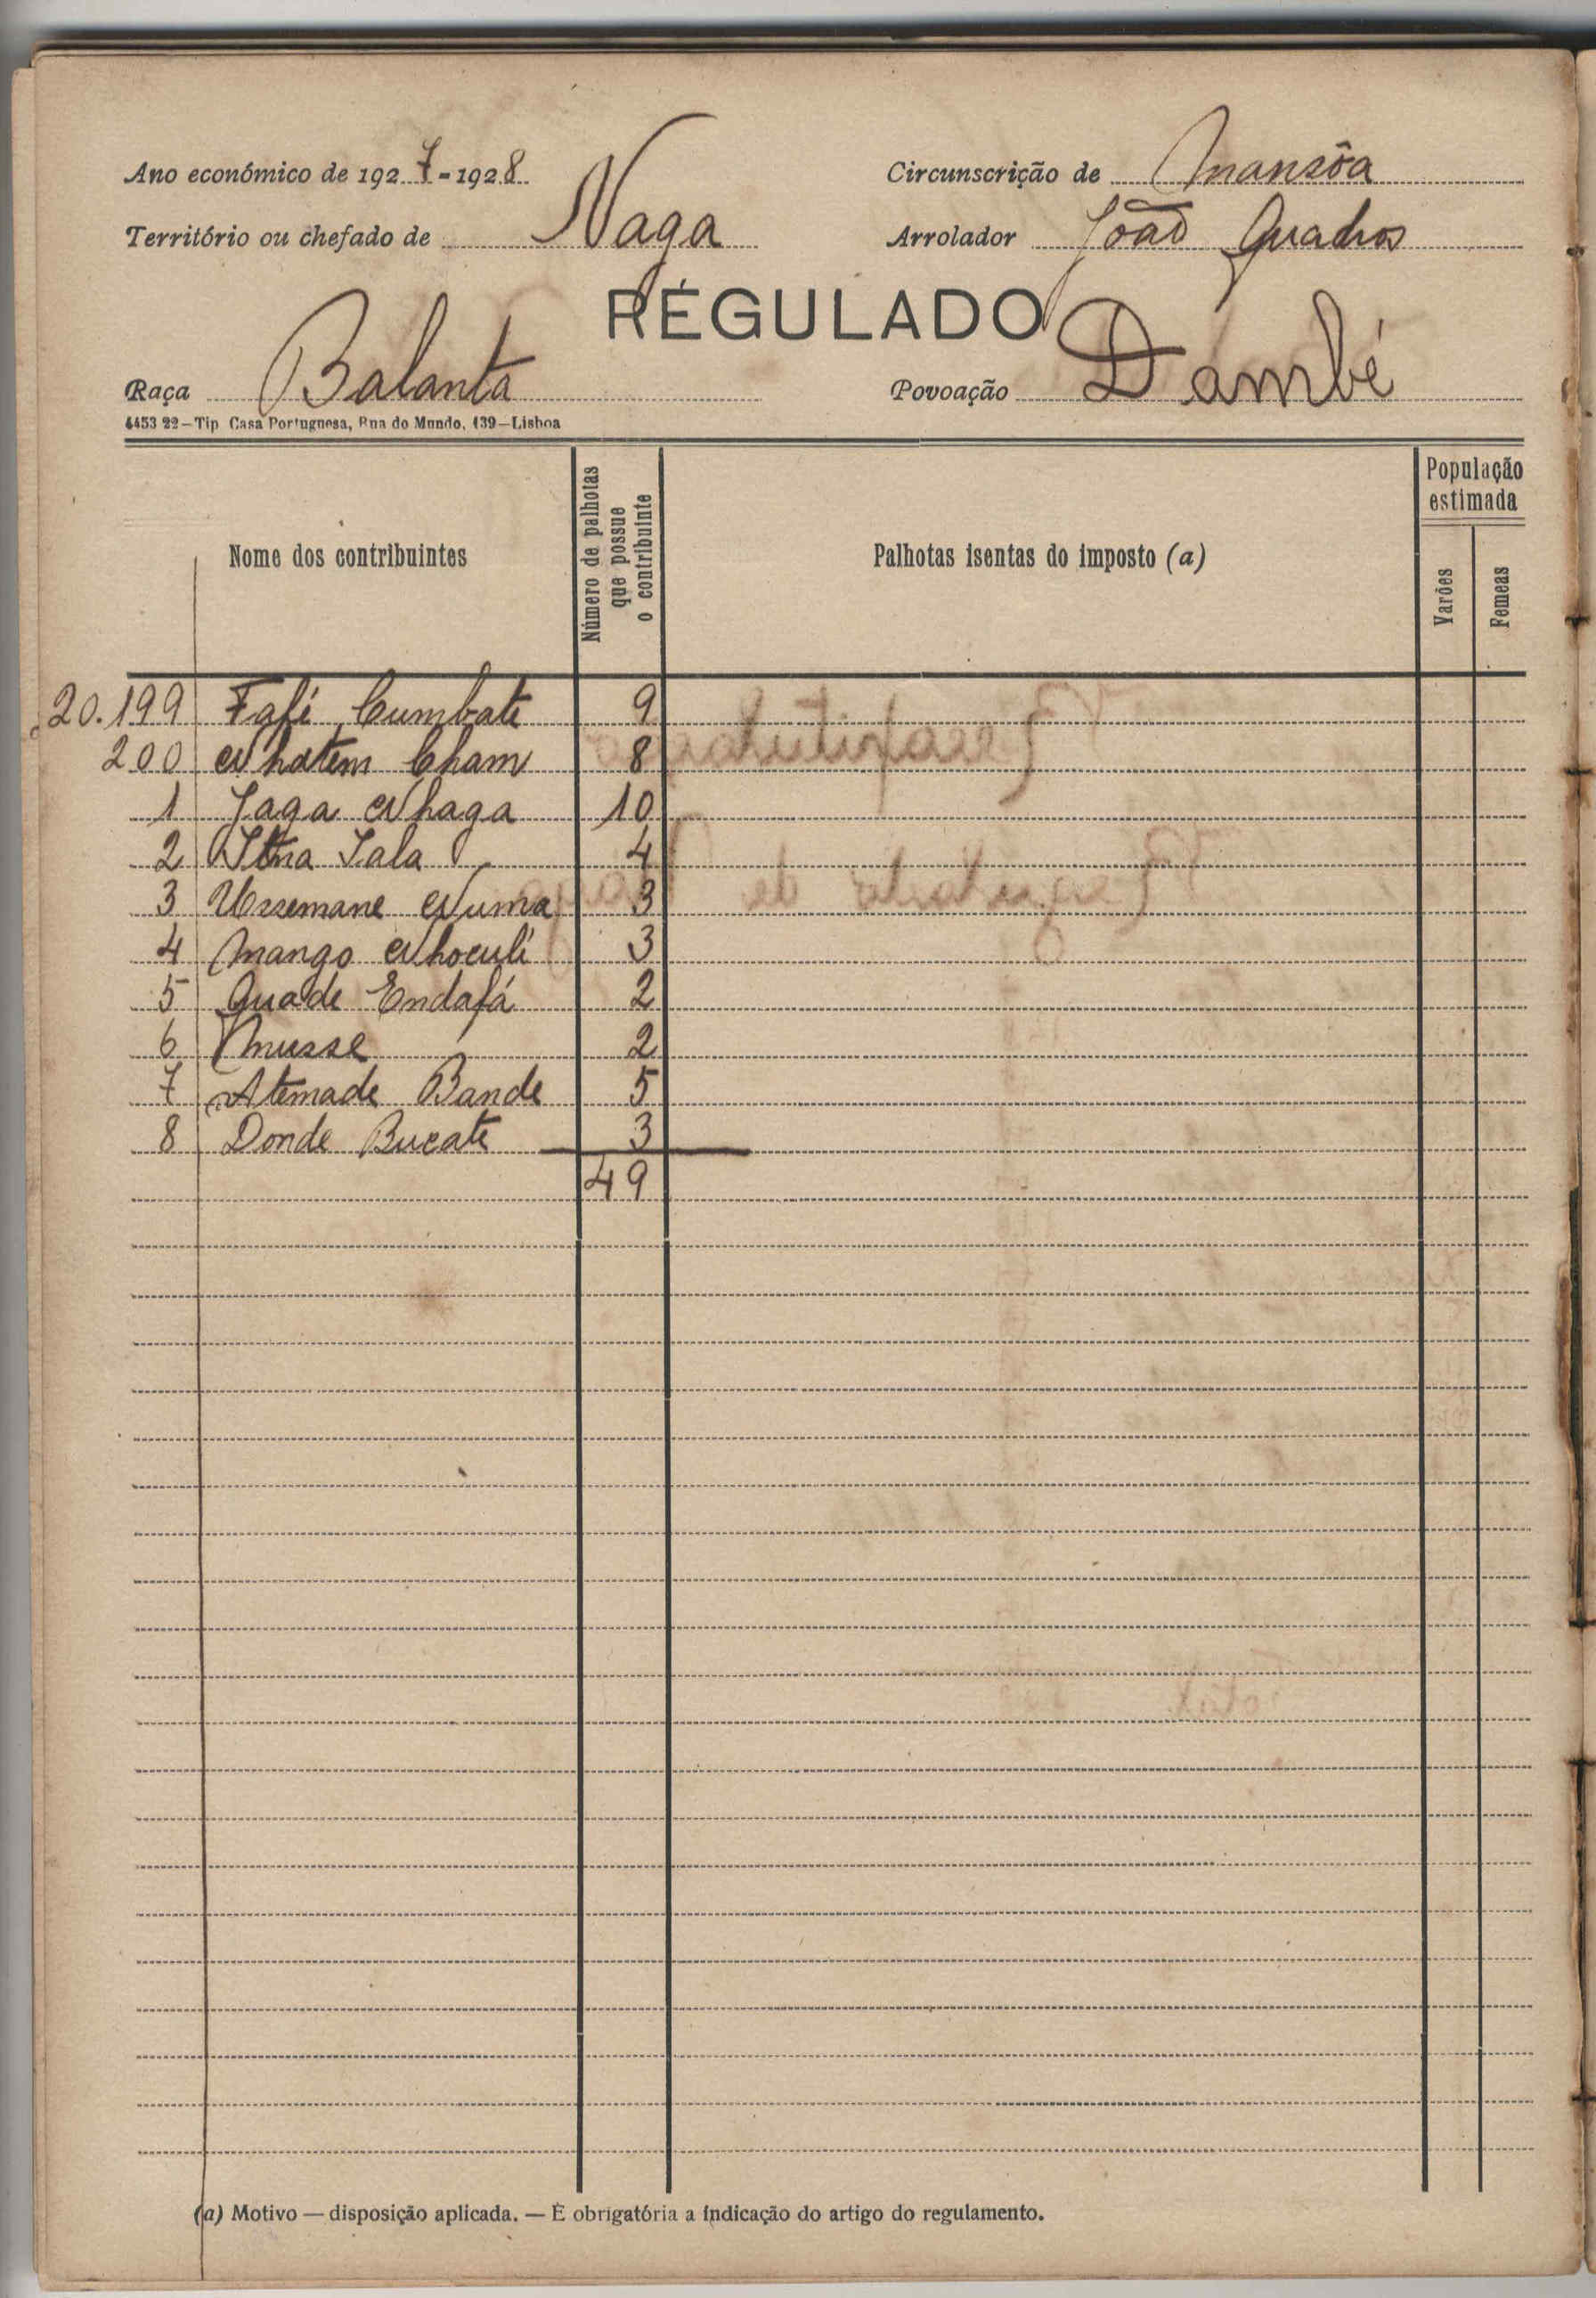 Ano económico de 1927-1928
Circunscrição de Mansôa
Território ou chefado de Naga
Arrolador João Quadros
RÉGULADO
Raça Balanta
Povoação Dambé
4453 22—Tip Casa Portuguesa, Rua do Mundo, 139—Lisboa
Nome dos contribuintes
Número de palhotas que possue o contribuinte
Palhotas isentas do imposto (a)
População estimada
Varões
Femeas
20.199 Fafé Cumbate 9
200 Nhatem Cham 8
1 Jaga Nhaga 10
2 Sala 4
3 Ussemane Numa 3
4 Mango Nhoculi 3
5 Quade Endafá 2
6 Musse 2
7 Atemade Bande 5
8 Donde Bucate 3
49
(a) Motivo — disposição aplicada. — É obrigatória a indicação do artigo do regulamento.